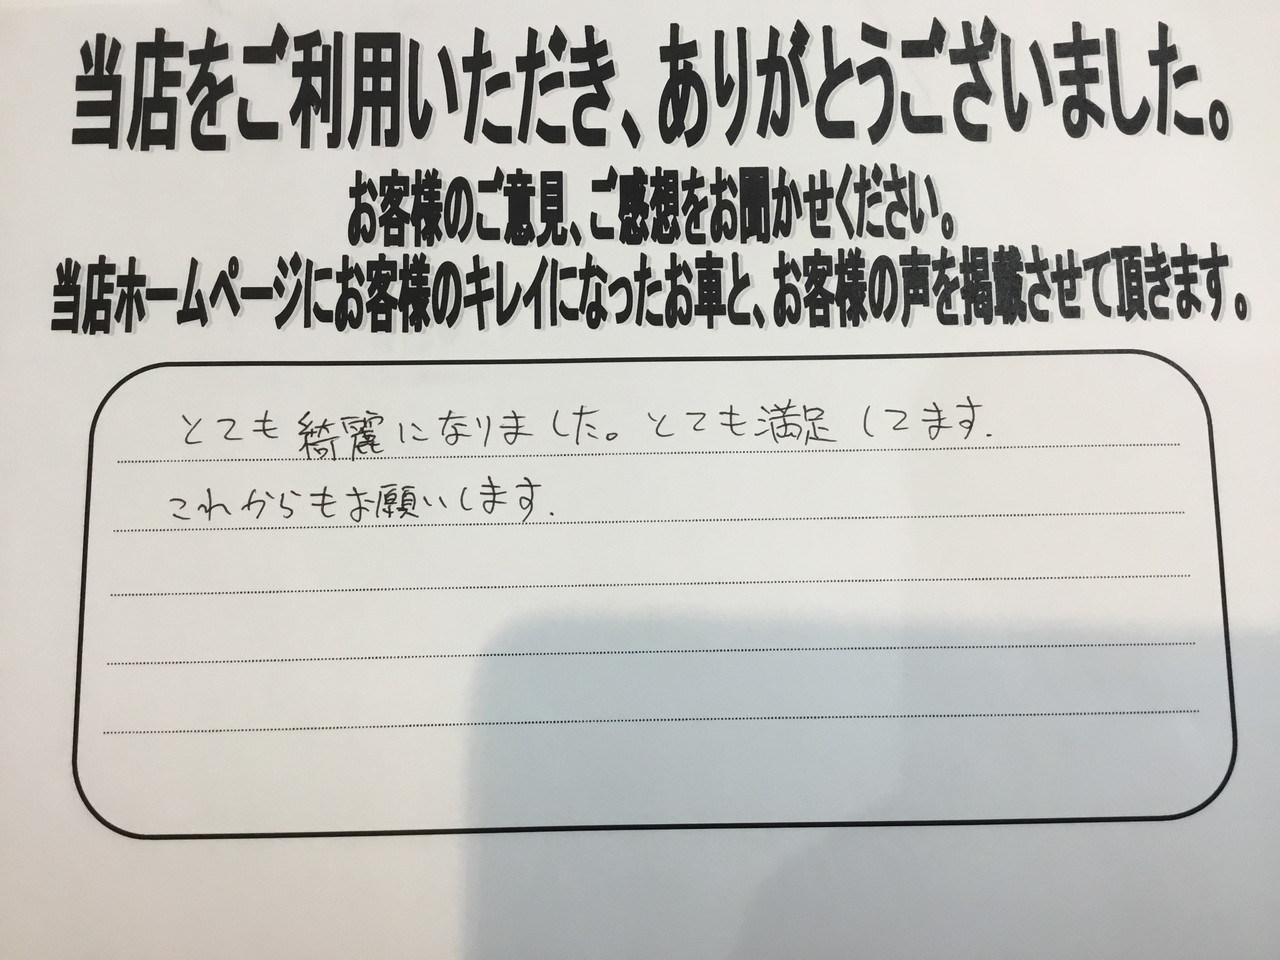 当店をご利用いただき、ありがとうございました。
お客様のご意見、ご感想をお聞かせください。
当店ホームページにお客様のキレイになったお車と、お客様の声を掲載させて頂きます。
とても綺麗になりました。とても満足してます.
これからもお願いします.